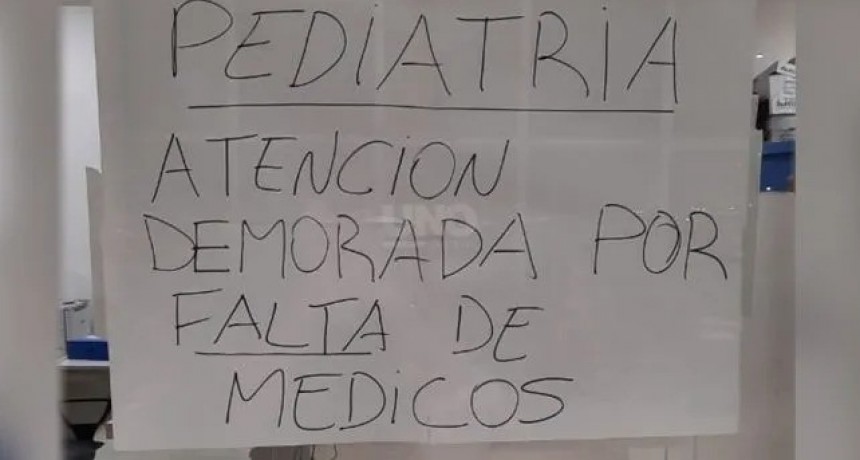 PEDIATRIA
ATENCION
DEMORADA POR
FALTA DE
MEDICOS
UNO